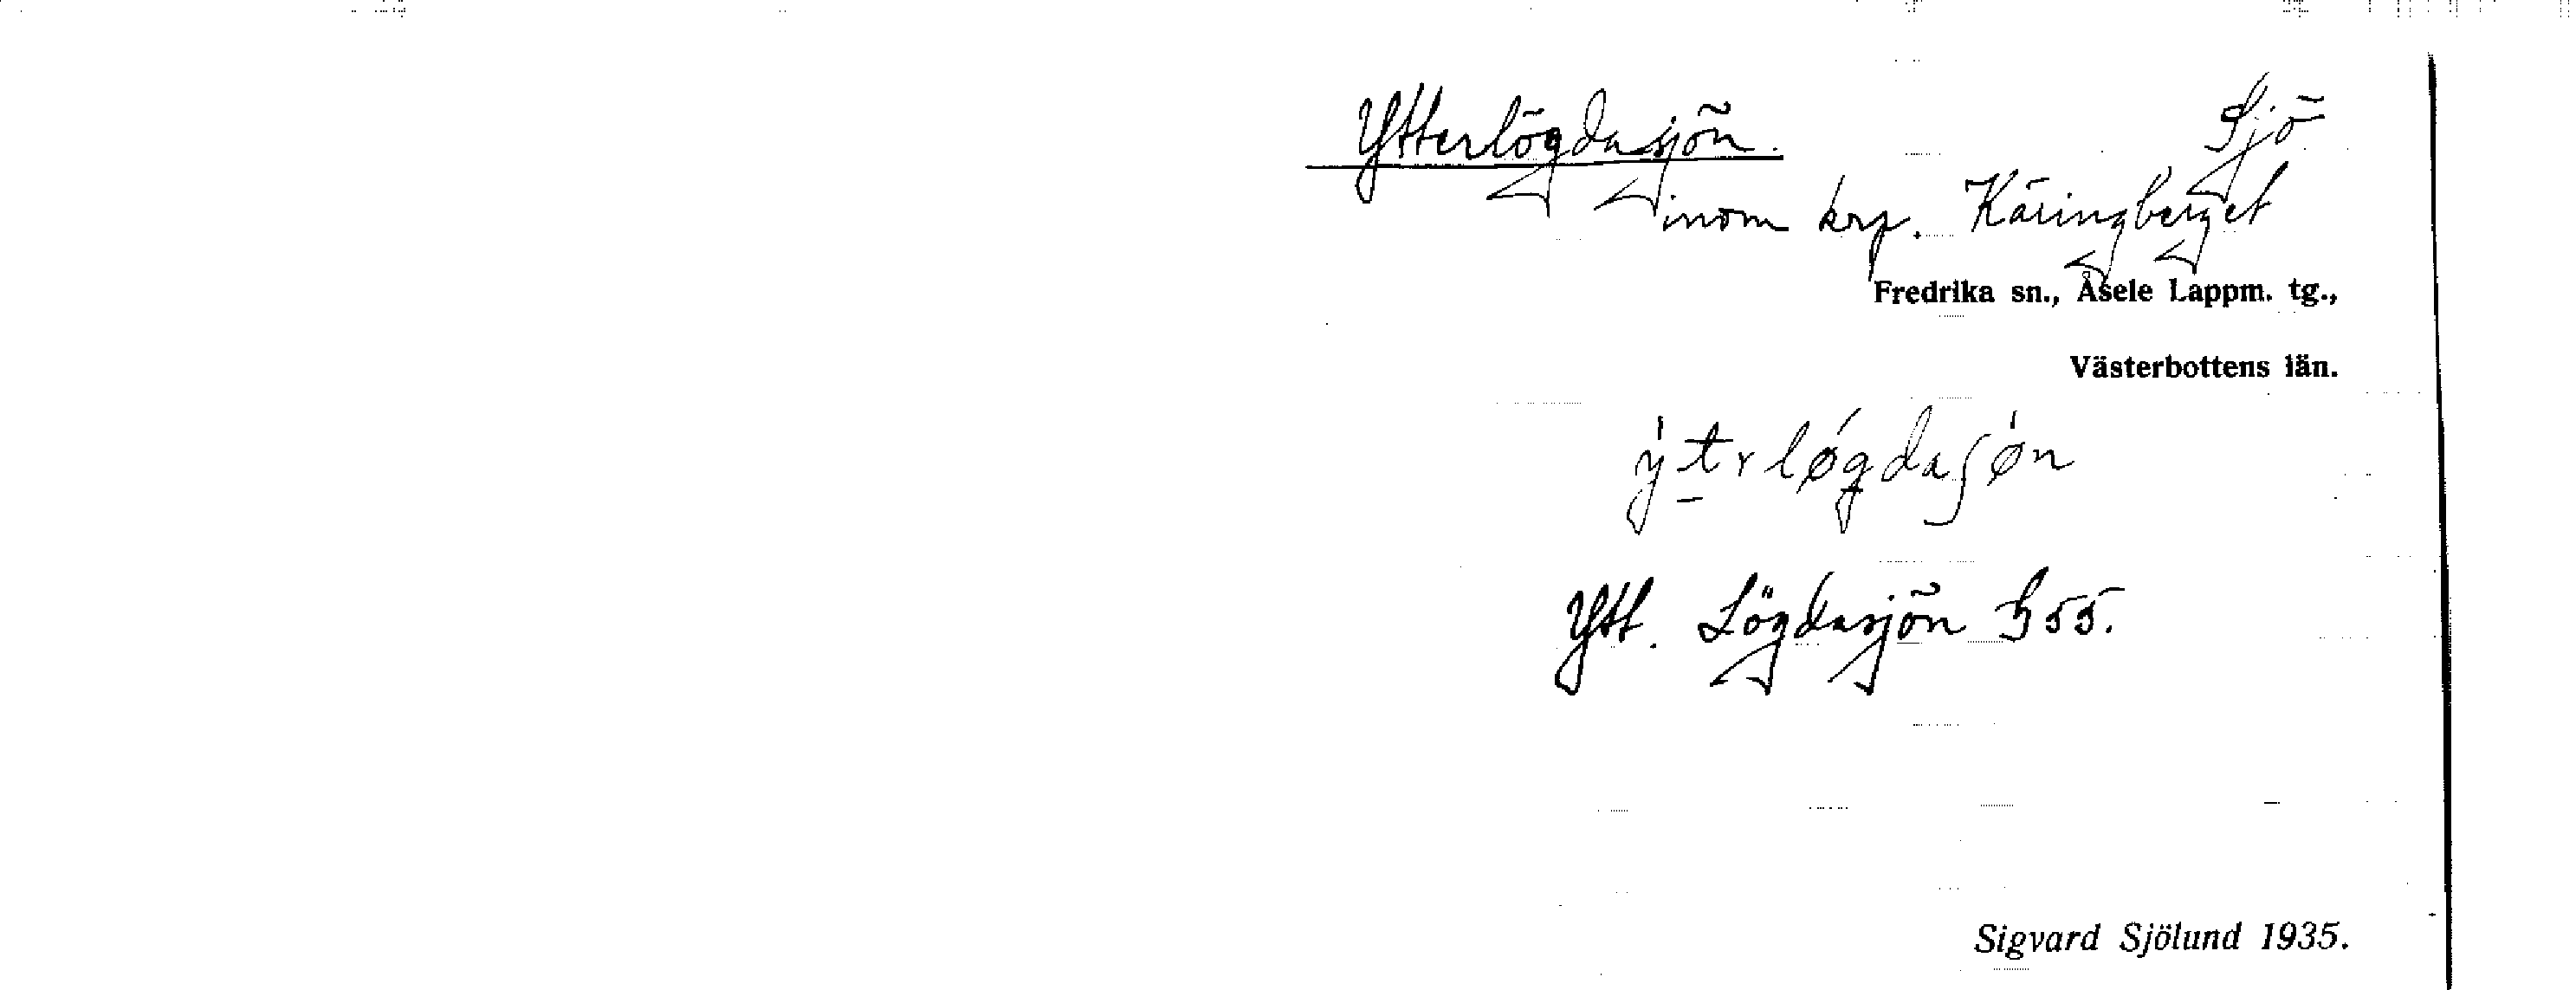 Ytterlögdasjön. Sjö
inom krp. Käringberget
Fredrika sn., Åsele Lappm. tg.,
Västerbottens län.
Ytt. Lögdasjön G 55.
Sigvard Sjölund 1935.